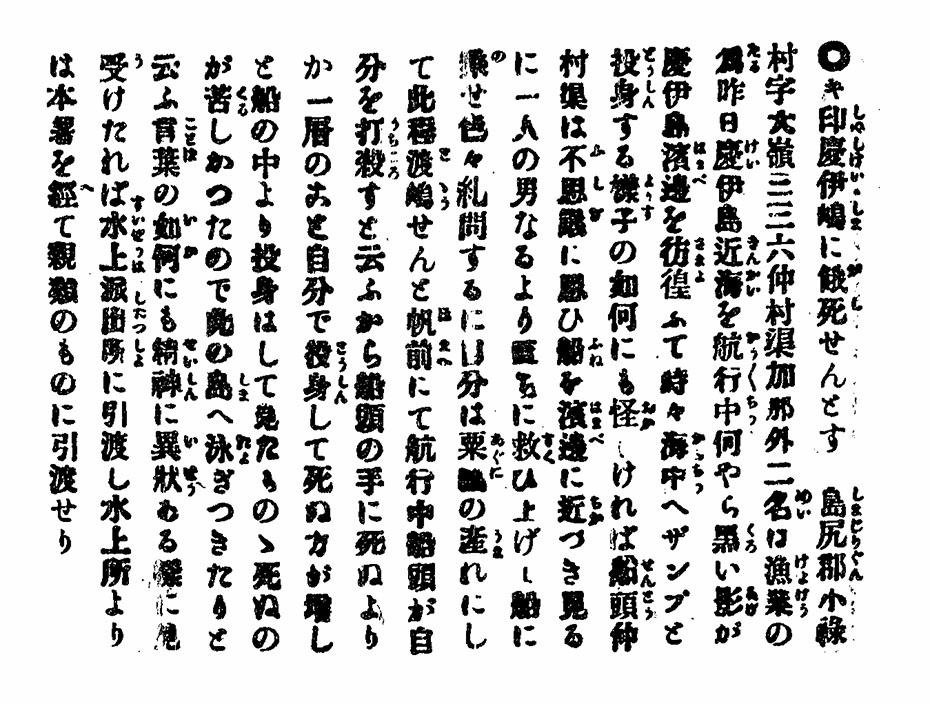 ◯キ印慶伊嶋に餓死せんとす　島尻郡小禄
村字大嶺三三六仲村渠加那外二名は漁業の
為昨日慶伊島近海を航行中何やら黒い影が
慶伊島濱邊を彷徨ふて時々海中へザンブと
投身する様子の如何にも怪しければ船頭仲
村渠は不思議に思ひ船を濱邊に近づき見る
に一人の男なるより直ちに救ひ上げし船に
乗せ色々糺問するに自分は粟國の産れにし
て此程渡嶋せんと帆前にて航行中船頭が自
分を打殺すと云ふから船頭の手に死ぬより
か一層のおと自分で投身して死ぬ方が増し
と船の中より投身はして見たものゝ死ぬの
が苦しかつたので此の島へ泳ぎつきたりと
云ふ言葉の如何にも精神に異狀ある様に見
受けたれば水上派出所に引渡し水上所より
は本署を經て親類のものに引渡せり